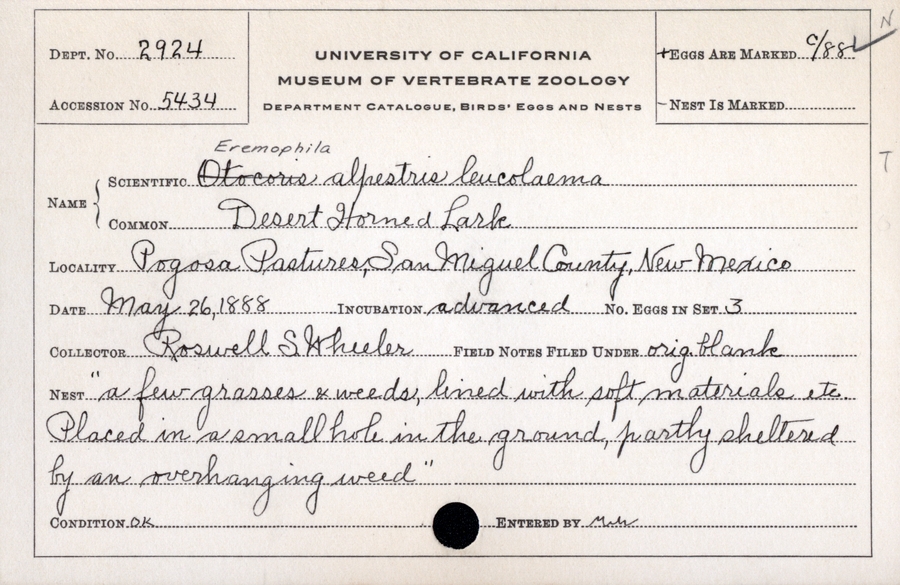 N
DEPT. No. 2924
UNIVERSITY OF CALIFORNIA
+EGGS ARE MARKED c/88
MUSEUM OF VERTEBRATE ZOOLOGY
ACCESSION No. 5434
DEPARTMENT CATALOGUE, BIRDS' EGGS AND NESTS
–NEST IS MARKED
Eremophila
T
NAME { SCIENTIFIC Otocoris alpestris leucolaema
COMMON Desert Horned Lark
LOCALITY Pogosa Pastures, San Miguel County, New Mexico
DATE May 26, 1888 INCUBATION advanced No. EGGS IN SET 3
COLLECTOR Roswell S. Wheeler FIELD NOTES FILED UNDER orig. blank
NEST "a few grasses & weeds, lined with soft materials etc.
Placed in a small hole in the ground, partly sheltered
by an overhanging weed"
CONDITION OK ENTERED BY